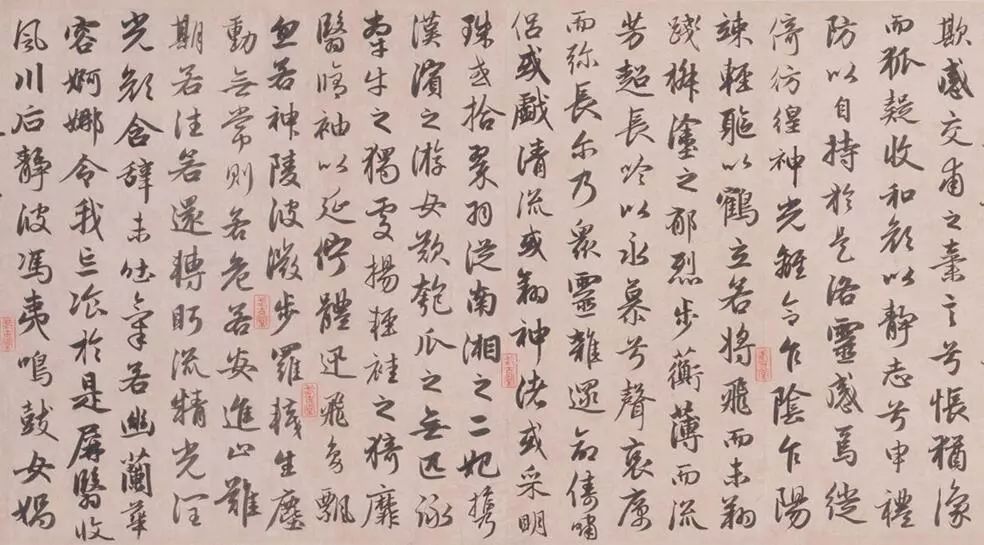 欺感交甫之棄言兮悵猶豫
而狐疑收和顏以靜志兮申禮
防以自持於是洛靈感焉徙
倚彷徨神光離合乍陰乍陽
竦輕軀以鶴立若將飛而未翔
踐椒塗之郁烈步蘅薄而流
芳超長吟以永慕兮聲哀厲
而彌長爾乃眾靈雜遝命儔嘯
侶或戲清流或翔神渚或采明
珠或拾翠羽從南湘之二妃攜
漢濱之游女歎匏瓜之無匹詠
牽牛之獨處揚輕袿之猗靡
翳脩袖以延佇體迅飛鳧飄
忽若神陵波微步羅韈生塵
動無常則若危若安進止難
期若往若還轉眄流精光潤
玉顏含辭未吐氣若幽蘭華
容婀娜令我忘飡於是屏翳收
風川后靜波馮夷鳴鼓女媧